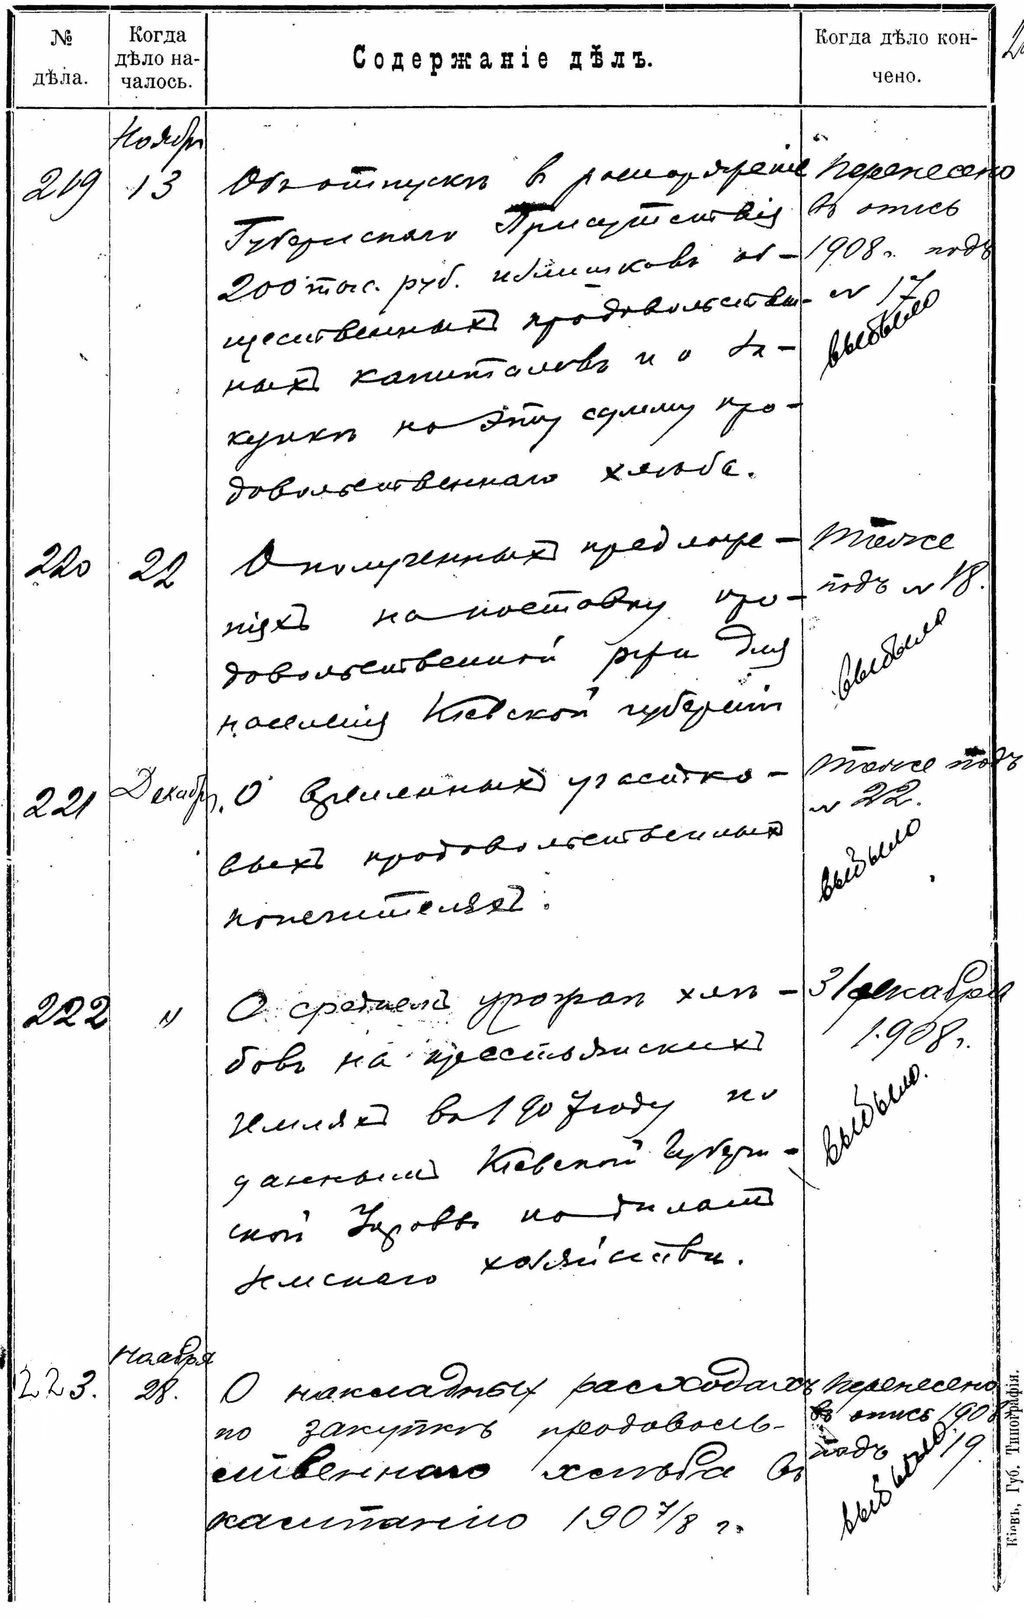 № дѣла.
Когда дѣло на-
чалось.
Содержаніе дѣлъ.
Когда дѣло кон-
чено.
Ноября
219
13
Объ отпускѣ в распоряженіе
Губернскаго Присутствія
200 тыс. руб. излишковъ об-
щественныхъ продовольствен-
ныхъ капиталовъ и о за-
купкѣ на эту сумму про-
довольственнаго хлѣба.
Перенесено
въ опись
1908 г. подъ
№ 17
выбыло
220
22
О полученныхъ предложе-
ніяхъ на поставку про-
довольственной ржи для
населенія Кіевской губерніи
Тоже
подъ № 18.
выбыло
221
Декабр.
О временныхъ участко-
выхъ продовольственныхъ
попечителяхъ.
Тоже подъ
№ 22.
выбыло
222
"
О среднемъ урожаѣ хлѣ-
бовъ на крестьянскихъ
земляхъ въ 1907 году по
даннымъ Кіевской Губерн-
ской Управы по дѣламъ
земскаго хозяйства.
31 декабря
1908 г.
выбыло.
223.
Ноября
28.
О накладныхъ расходахъ
по закупкѣ продоволь-
ственнаго хлѣба въ
кампанію 1907/8 г.
Перенесено
въ опись 1908
подъ 19
выбыло.
Кіевъ, Губ. Типографія.